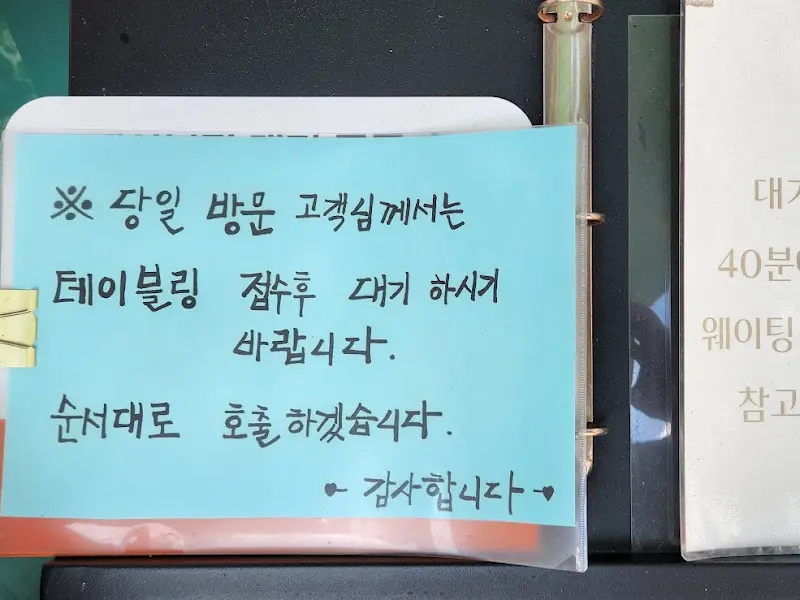 ※ 당일 방문 고객님께서는
테이블링 접수후 대기 하시기
바랍니다.
순서대로 호출하겠습니다.
감사합니다
40분
웨이팅
참고